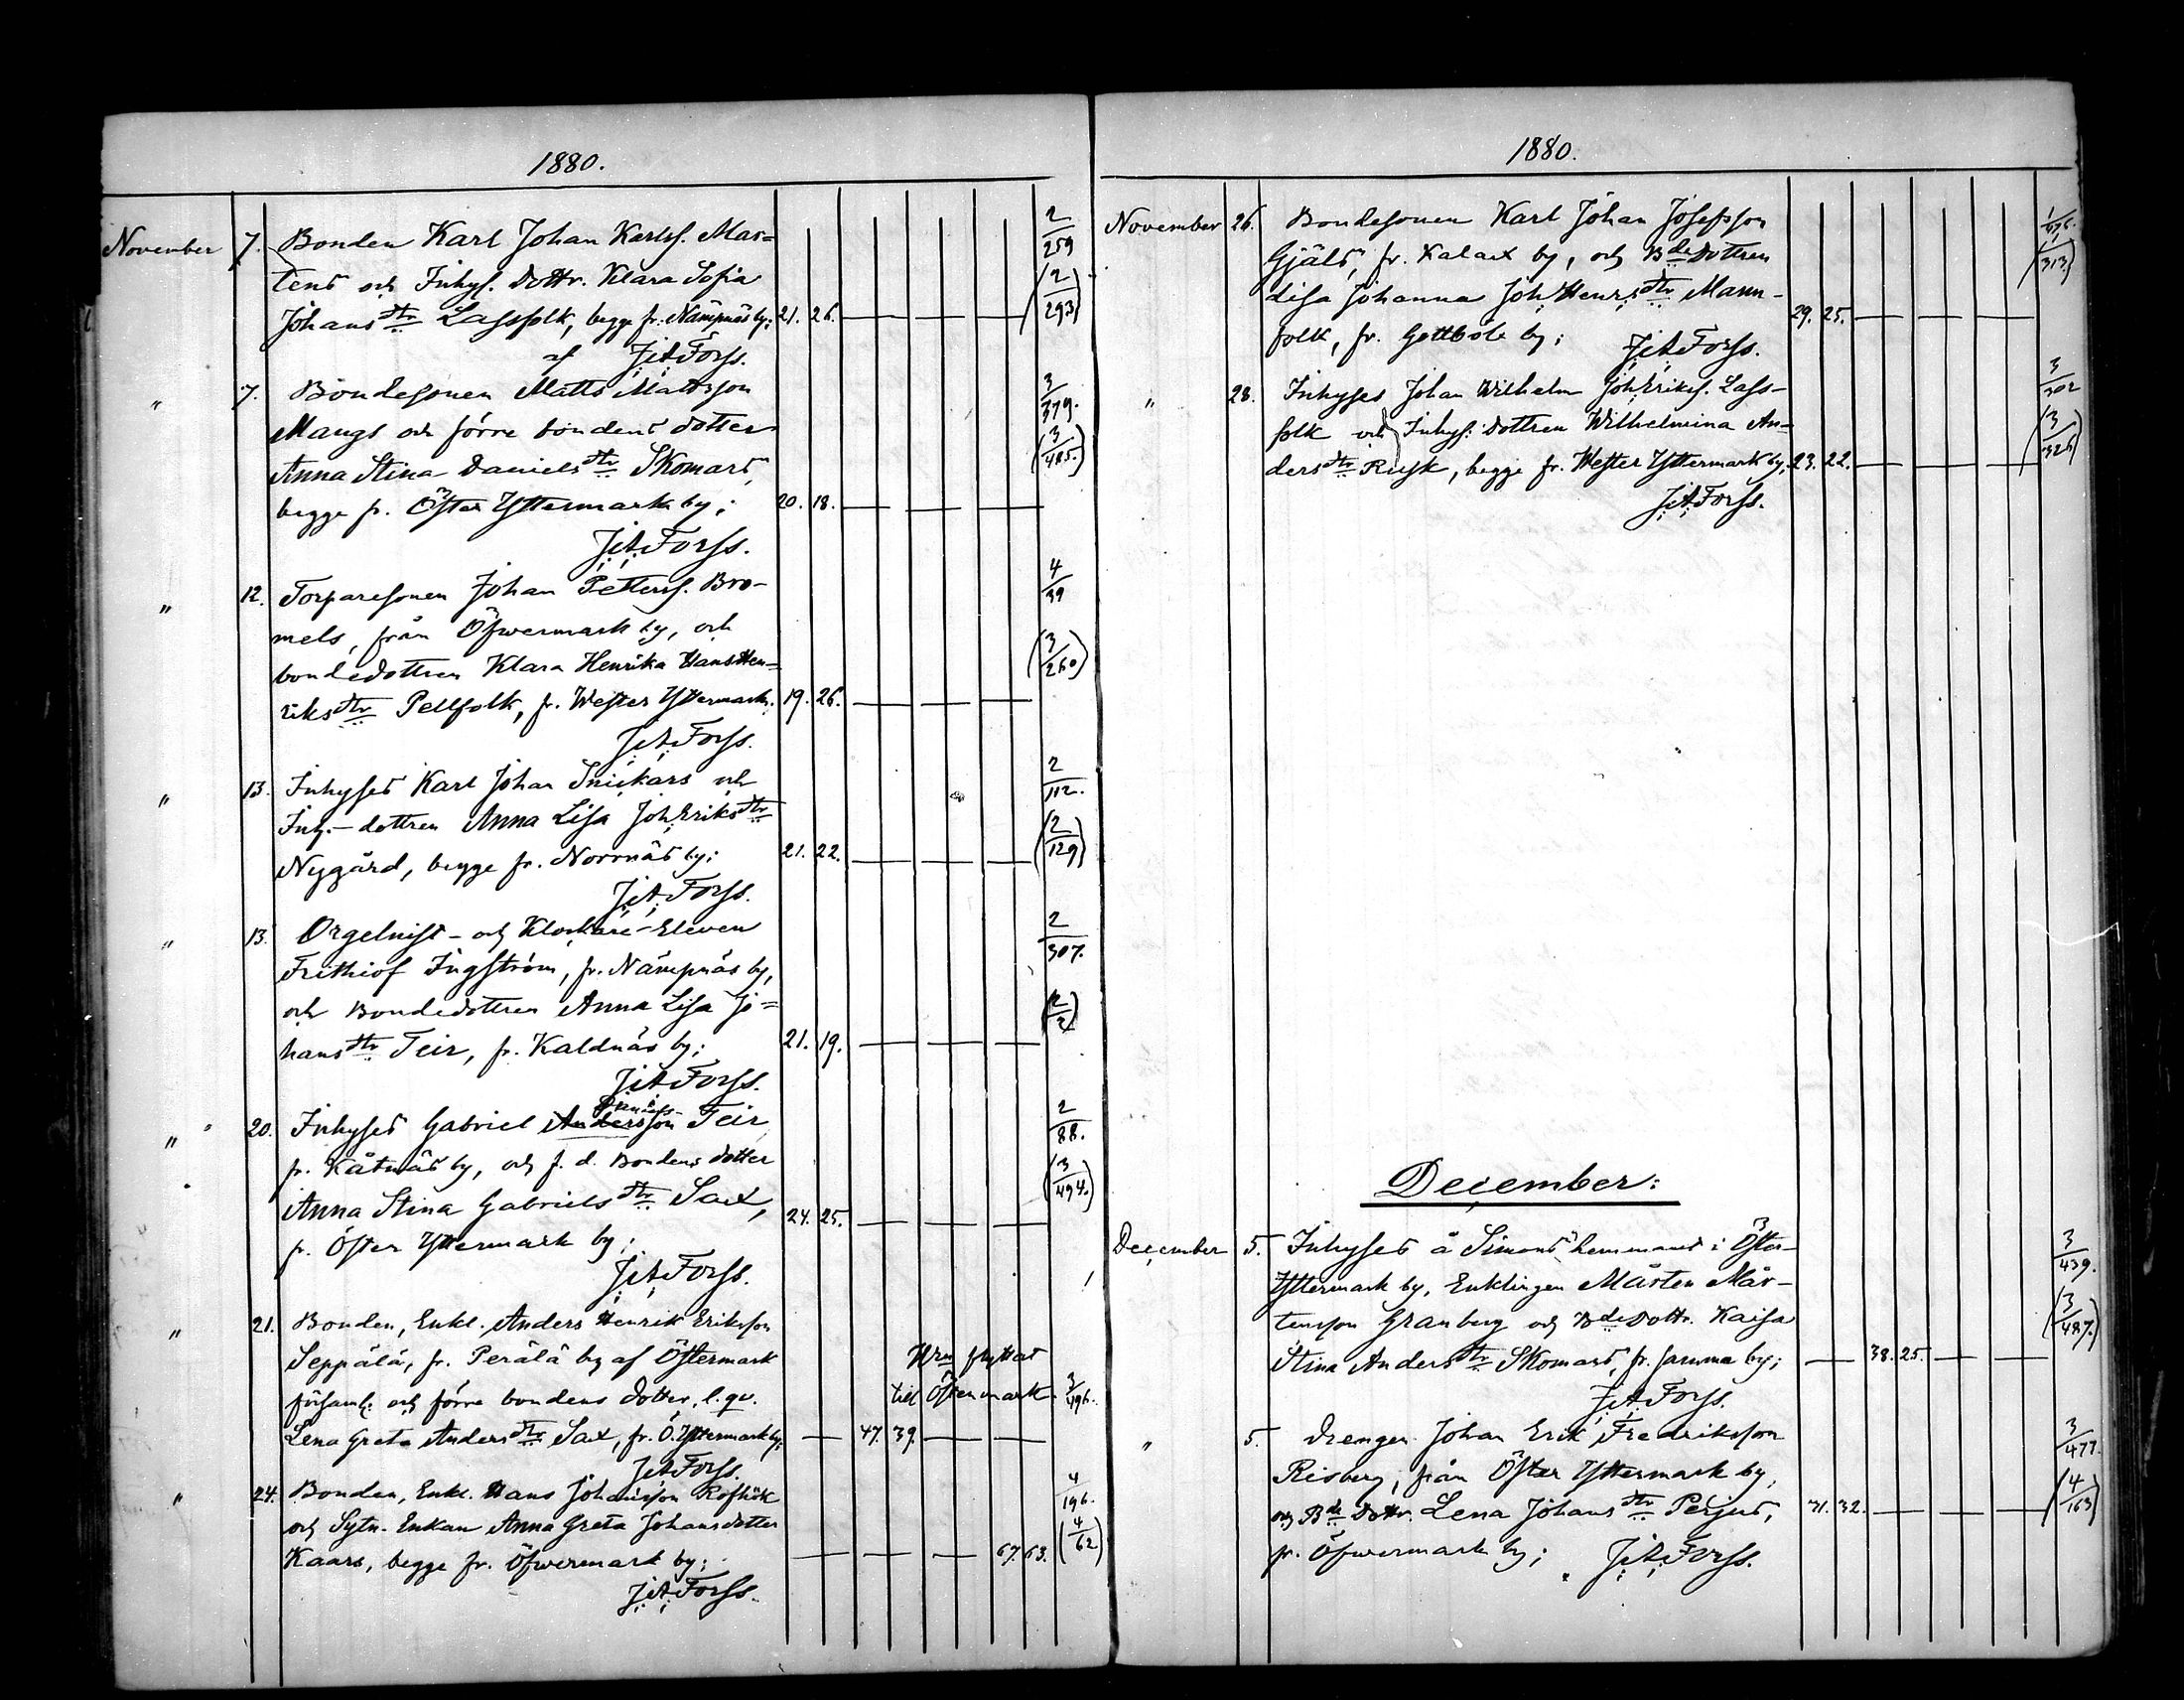 1880.
November 7. Bonden Karl Johan Karlss. Mas= 2/259
tens och Inhys. Dottr. Klara Sofia (2/293)
Johansdtr Lassfolk, begge fr. Nämpnäs by; 21. 26.
af J. A. Forss.
" 7. Bondesonen Matts Mattsson 3/379.
Mangs och förre bondens dotter (3/485.)
Anna Stina Danielsdtr Skomars,
begge fr. Öster Yttermark by; 20. 18.
J. A. Forss.
" 12. Torparesonen Johan Petterss. Bro- 4/39
mels, från Öfwermark by, och
bondedottren Klara Henrika Hans Hen= (3/260)
riksdtr Pellfolk, fr. Wester Yttermark. 19. 26.
J. A. Forss.
" 13. Inhyses Karl Johan Snickars och 2/112.
Inh.-dottren Anna Lisa Joh. Eriksdtr (2/129)
Nygård, begge fr. Norrnäs by; 21. 22.
J. A. Forss.
" 13. Orgelnist- och Klockare-Eleven 2/307.
Frithiof Ingström, fr. Nämpnäs by,
och Bondedottren Anna Lisa Jo= (2/2)
hansdtr Teir, fr. Kaldnäs by; 21. 19.
J. A. Forss.
" 20. Inhyses Gabriel Andersson Teir 2/88.
fr. Kåtnäs by, och f. d. Bondens dotter (3/494.)
Anna Stina Gabrielsdtr Sax, 24. 25.
fr. Öster Yttermark by;
J. A. Forss.
" 21. Bonden, Enkl. Anders Henrik Eriksson
Seppälä, fr. Perälä by af Östermark Hru flyttat
församl. och förre bondens dotter, l. qv. till Östermark 3/496.
Lena Greta Andersdtr Sax, fr. Ö. Yttermark by; 47. 39.
J. A. Forss.
" 24. Bonden, Enkl. Hans Johansson Rofhök 4/196.
och Sytn. Enkan Anna Greta Johansdotter (4/62)
Kaars, begge fr. Öfwermark by; 67. 63.
J. A. Forss.
1880.
November 26. Bondesonen Karl Johan Josefsson
Gjäls, fr. Kalax by, och Bdedottren (313)
Lisa Johanna Joh. Henrsdtr Mann-
folk, fr. Gottböle by; 29. 25.
J. A. Forss.
" 28. Inhyses Johan Wilhelm Joh. Erikss. Lass- 3/302
folk och Inhys: dottren Wilhelmina An- (3/326)
dersdtr Rusk, begge fr. Wester Yttermark by; 23. 22.
J. A. Forss.
December:
December 5. Inhyses å Simons hemmanet i Öster- 3/439.
Yttermark by, Enklingen Mårten Mår-
tensson Granberg och Bdedottr. Kaisa (3/487.)
Stina Andersdtr Skomars, fr. samma by; 38. 25.
J. A. Forss.
" 5. Drengen Johan Erik Fredriksson 3/477.
Risberg, från Öster Yttermark by,
och Bde Dottr. Lena Johansdtr Perjus, 31. 32. (4/163)
fr. Öfwermark by; J. A. Forss.